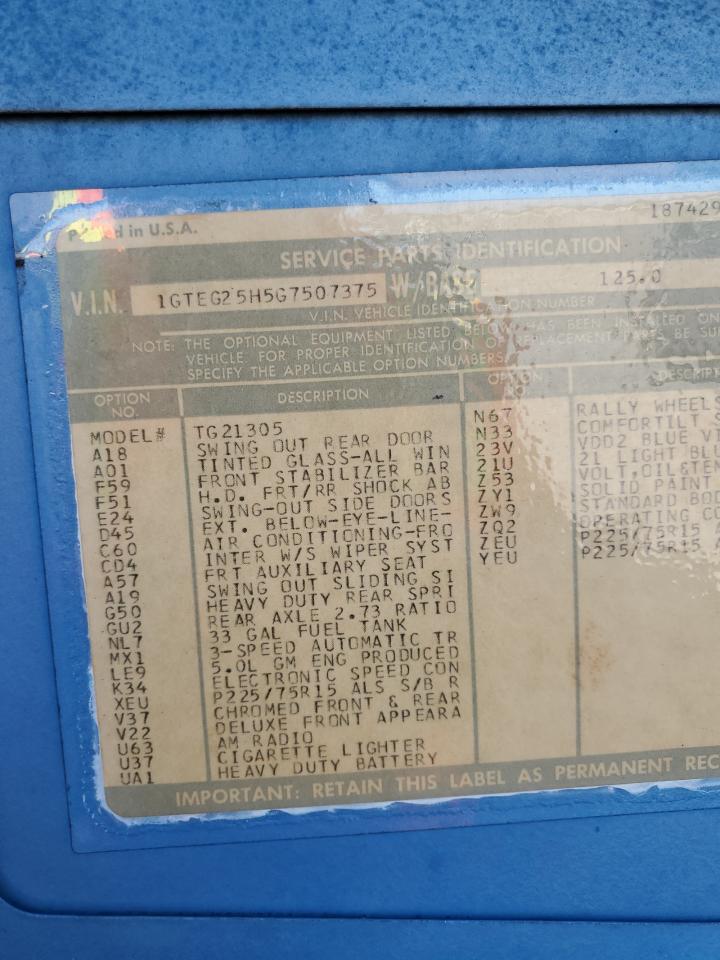 Printed in U.S.A.
187429
SERVICE PARTS IDENTIFICATION
V.I.N. 1GTEG25H5G7507375 W/BASE 125.0
V.I.N. VEHICLE IDENTIFICATION NUMBER
NOTE: THE OPTIONAL EQUIPMENT LISTED BELOW HAS BEEN INSTALLED ON
VEHICLE. FOR PROPER IDENTIFICATION OF REPLACEMENT PARTS BE SU
SPECIFY THE APPLICABLE OPTION NUMBERS.
OPTION NO. DESCRIPTION
MODEL# TG21305
A18 SWING OUT REAR DOOR
A01 TINTED GLASS-ALL WIN
F59 FRONT STABILIZER BAR
F51 H.D. FRT/RR SHOCK AB
E24 SWING-OUT SIDE DOORS
D45 EXT. BELOW-EYE-LINE-
C60 AIR CONDITIONING-FRO
CD4 INTER W/S WIPER SYST
A57 FRT AUXILIARY SEAT
A19 SWING OUT SLIDING SI
G50 HEAVY DUTY REAR SPRI
GU2 REAR AXLE 2.73 RATIO
NL7 33 GAL FUEL TANK
MX1 3-SPEED AUTOMATIC TR
LE9 5.0L GM ENG PRODUCED
K34 ELECTRONIC SPEED CON
XEU P225/75R15 ALS S/B R
V37 CHROMED FRONT & REAR
V22 DELUXE FRONT APPEARA
U63 AM RADIO
U37 CIGARETTE LIGHTER
UA1 HEAVY DUTY BATTERY
OPTION DESCRIPT
N67 RALLY WHEELS
N33 COMFORTILT S
23V VDD2 BLUE VI
21U 2L LIGHT BLU
Z53 VOLT,OIL&TE
ZY1 SOLID PAINT
ZW9 STANDARD BOD
ZQ2 OPERATING CO
ZEU P225/75R15
YEU P225/75R15 A
IMPORTANT: RETAIN THIS LABEL AS PERMANENT REC